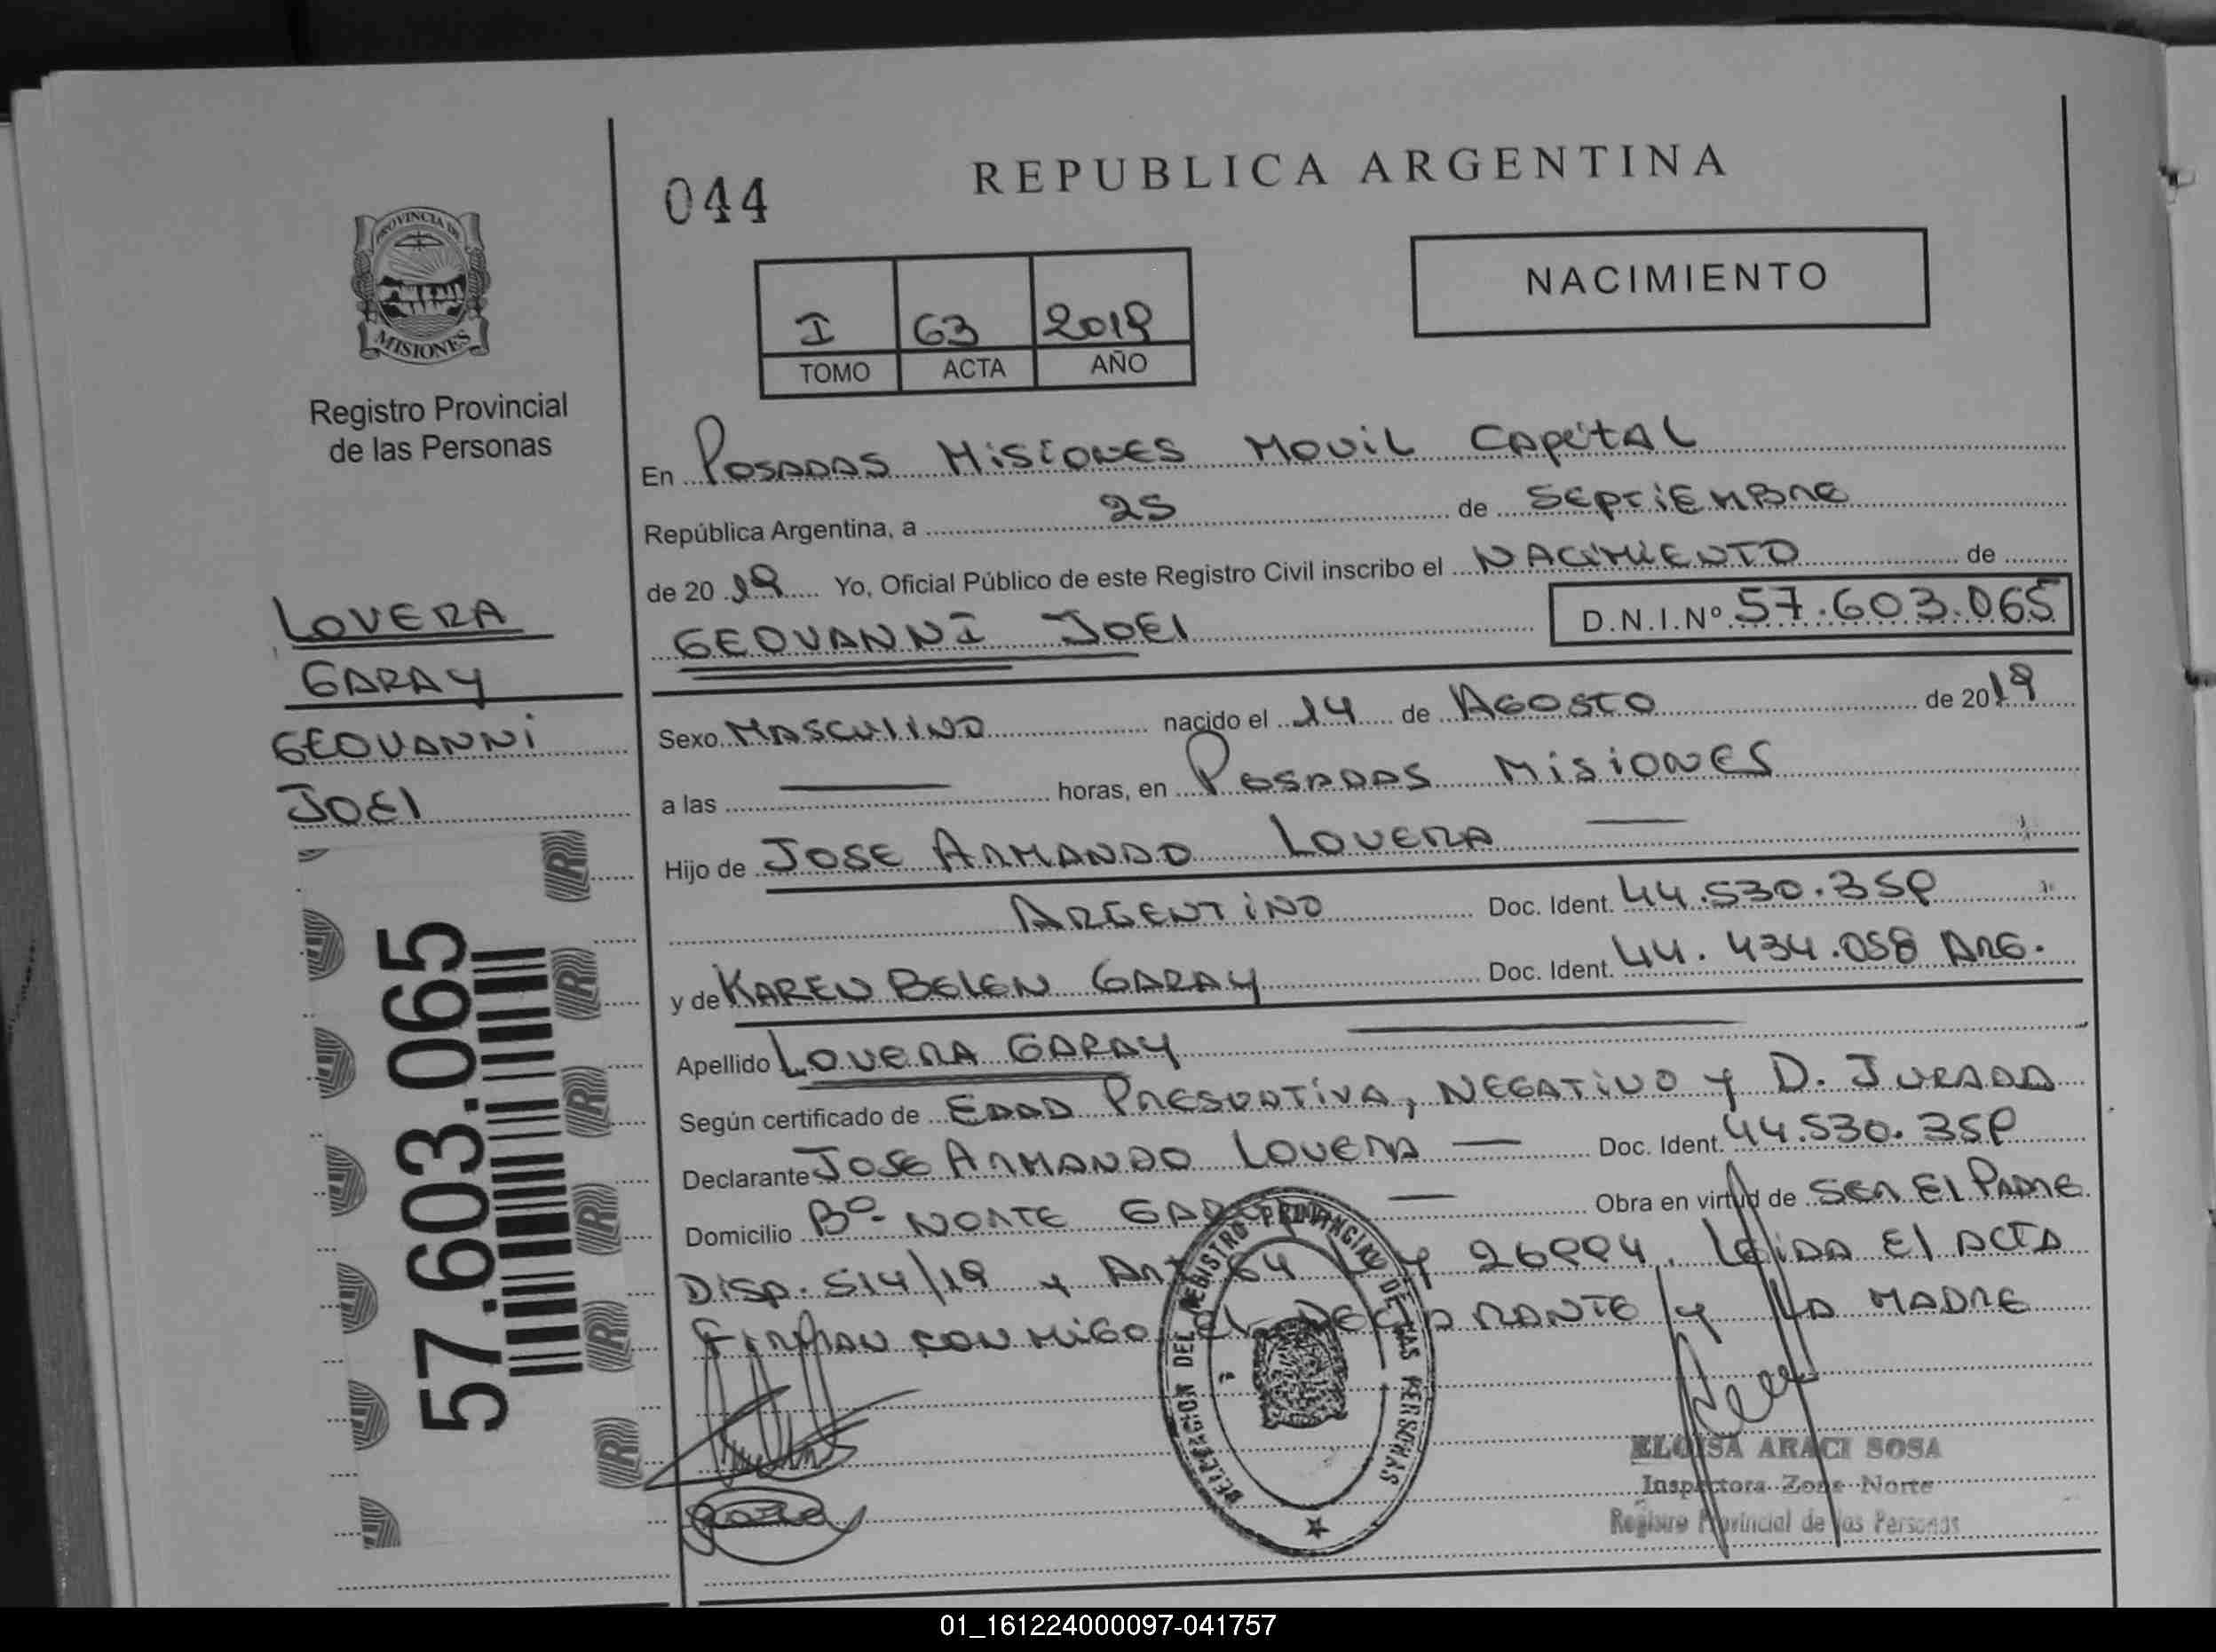 044
REPUBLICA ARGENTINA
PROVINCIA DE
MISIONES
NACIMIENTO
I 63 2019
TOMO ACTA AÑO
Registro Provincial
de las Personas
En POSADAS MISIONES MOVIL CAPITAL
República Argentina, a 25 de SEPTIEMBRE
de 20 19 Yo, Oficial Público de este Registro Civil inscribo el NACIMIENTO de
GEOVANNI JOEL D.N.I.Nº 57.603.065
LOVERA
GARAY
GEOVANNI
JOEL
Sexo MASCULINO nacido el 14 de AGOSTO de 2019
a las horas, en POSADAS MISIONES
Hijo de JOSE ARMANDO LOVERA
ARGENTINO Doc. Ident. 44.530.359
y de KAREN BELEN GARAY Doc. Ident. 44.434.058 ARG.
Apellido LOVERA GARAY
Según certificado de EDAD PRESUNTIVA, NEGATIVO y D. JURADA
Declarante JOSE ARMANDO LOVERA Doc. Ident. 44.530.359
Domicilio Bº NORTE Obra en virtud de SER EL PADRE
DISP. 514/19 y ART 64 LEY 26994. LEIDA EL ACTA
FIRMAN CONMIGO EL DECLARANTE y LA MADRE
57.603.065
DELEGACION DEL REGISTRO PROVINCIAL DE LAS PERSONAS
ELOISA ARACI SOSA
Inspectora Zona Norte
Registro Provincial de las Personas
01_161224000097-041757